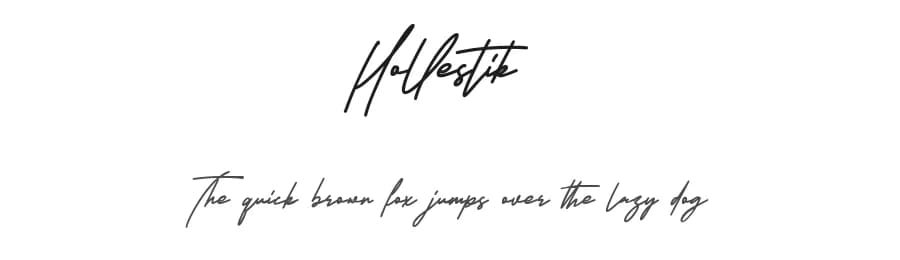 Hollestik
The quick brown fox jumps over the lazy dog